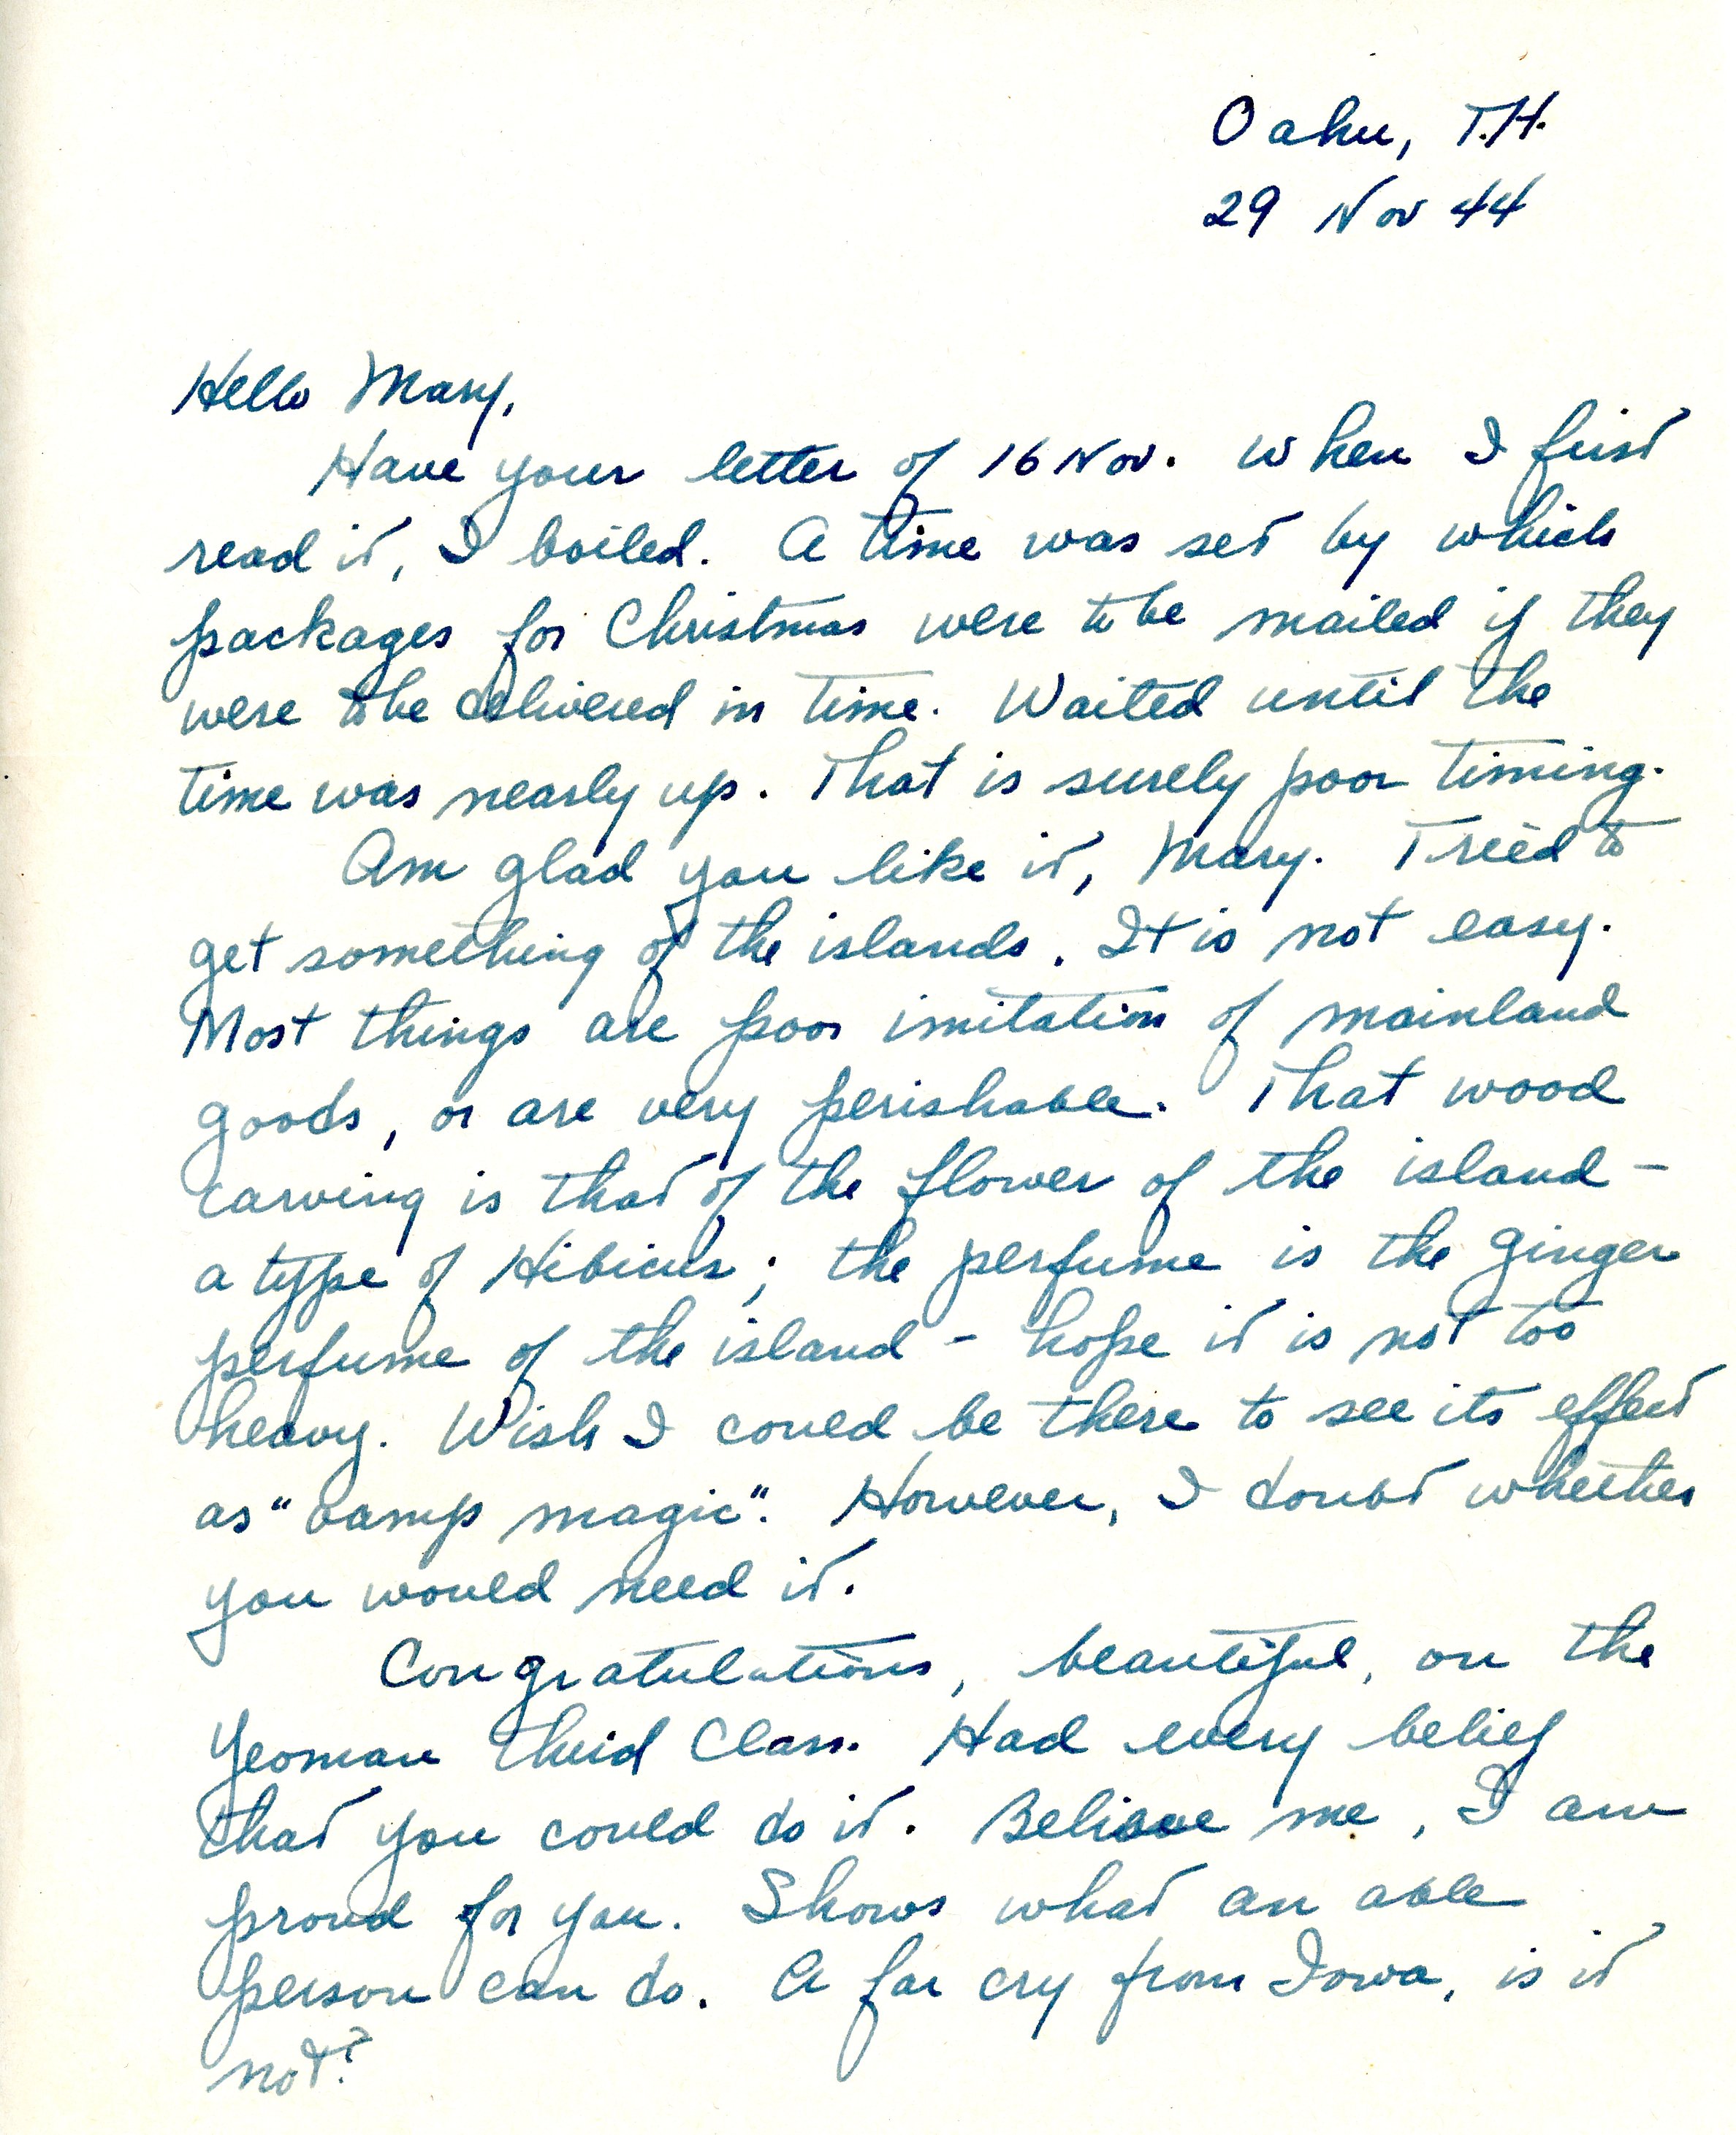 Oahu, T.H.
29 Nov 44
Hello Mary,
Have your letter of 16 Nov. When I first
read it, I boiled. A time was set by which
packages for Christmas were to be mailed if they
were to be delivered in time. Waited until the
time was nearly up. That is surely poor timing.
Am glad you like it, Mary. Tried to
get something of the islands. It is not easy.
Most things are poor imitation of mainland
goods, or are very perishable. That wood
carving is that of the flower of the island -
a type of Hibicus; the perfume is the ginger
perfume of the island - hope it is not too
heavy. Wish I could be there to see its effect
as "vamp magic". However, I doubt whether
you would need it.
Congratulations, beautiful, on the
Yeoman Third Class. Had every belief
that you could do it. Believe me, I am
proud for you. Shows what an able
person can do. A far cry from Iowa, is it
not?